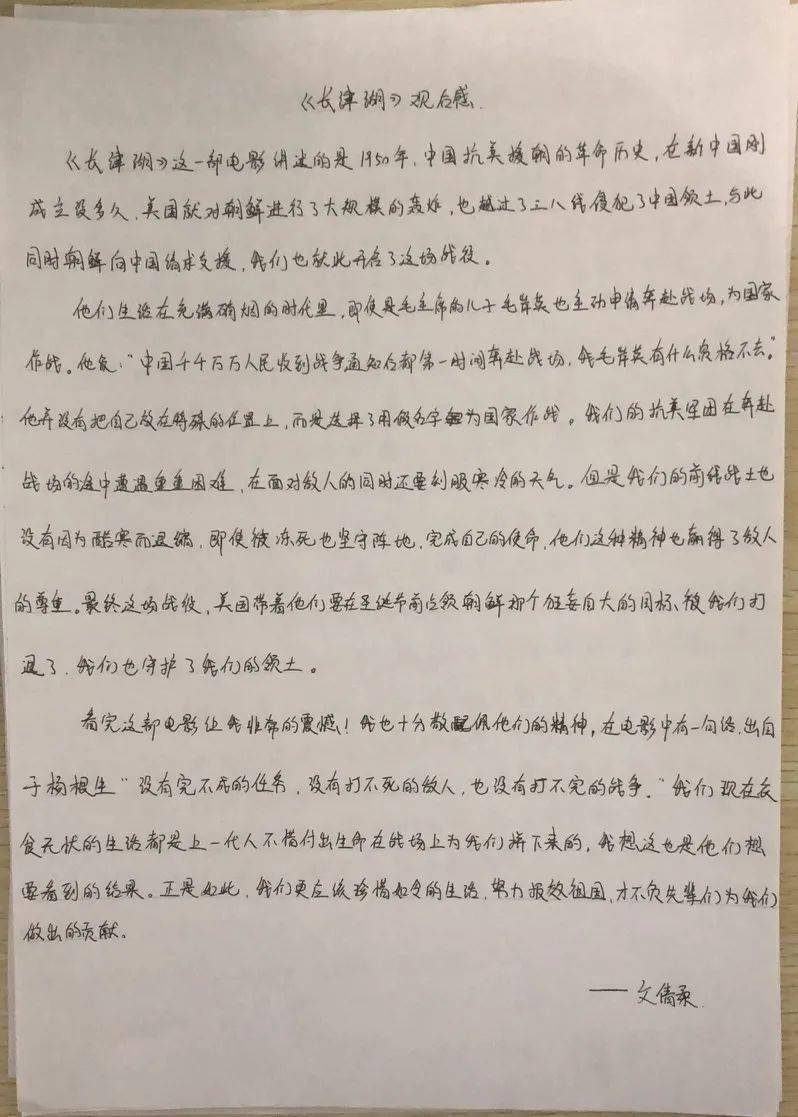 《长津湖》观后感.
《长津湖》这一部电影讲述的是1950年，中国抗美援朝的革命历史，在新中国刚
成立没多久，美国就对朝鲜进行了大规模的轰炸，也越过了三八线侵犯了中国领土，与此
同时朝鲜向中国请求支援，我们也就此开启了这场战役。
他们生活在充满硝烟的时代里，即使是毛主席的儿子毛岸英也主动申请奔赴战场，为国家
作战。他说：“中国千千万万人民收到战争通知后都第一时间奔赴战场，我毛岸英有什么资格不去。”
他并没有把自己放在特殊的位置上，而是选择了用假名字为国家作战。我们的抗美军团在奔赴
战场的途中遭遇重重困难，在面对敌人的同时还要刻服寒冷的天气。但是我们的前线战士也
没有因为酷寒而退缩，即使被冻死也坚守阵地，完成自己的使命，他们这种精神也赢得了敌人
的尊重。最终这场战役，美国带着他们要在圣诞节前占领朝鲜那个狂妄自大的目标、被我们打
退了，我们也守护了我们的领土。
看完这部电影让我非常的震撼！我也十分敬佩他们的精神，在电影中有一句话，出自
于杨根生“没有完不成的任务，没有打不死的敌人，也没有打不完的战争。”我们现在衣
食无忧的生活都是上一代人不惜付出生命在战场上为我们拼下来的，我想这也是他们想
要看到的结果。正是如此，我们更应该珍惜如今的生活，努力报效祖国，才不负先辈们为我们
做出的贡献。
——文倩柔